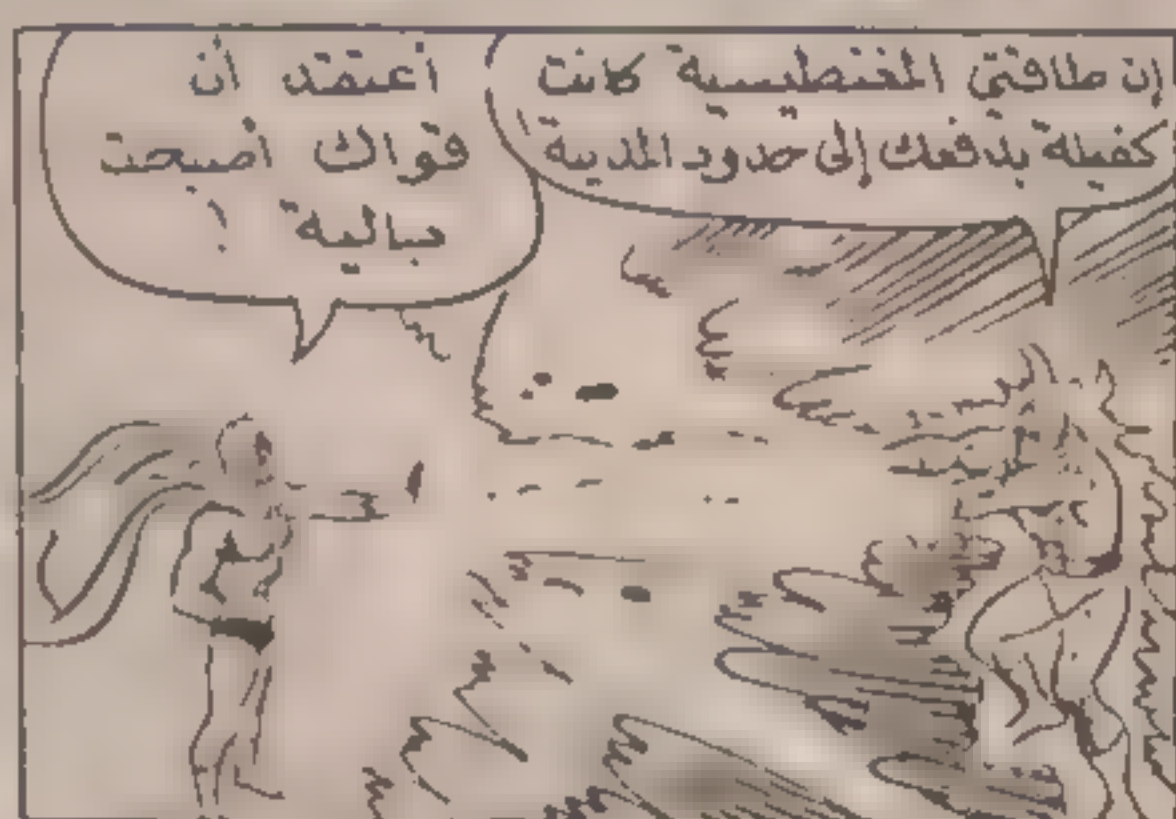 إن طاقتي المغنطيسية كانت
كفيلة بدفعك إلى حدود المدينة
أعتقد أن
قواك أصبحت
بالية !